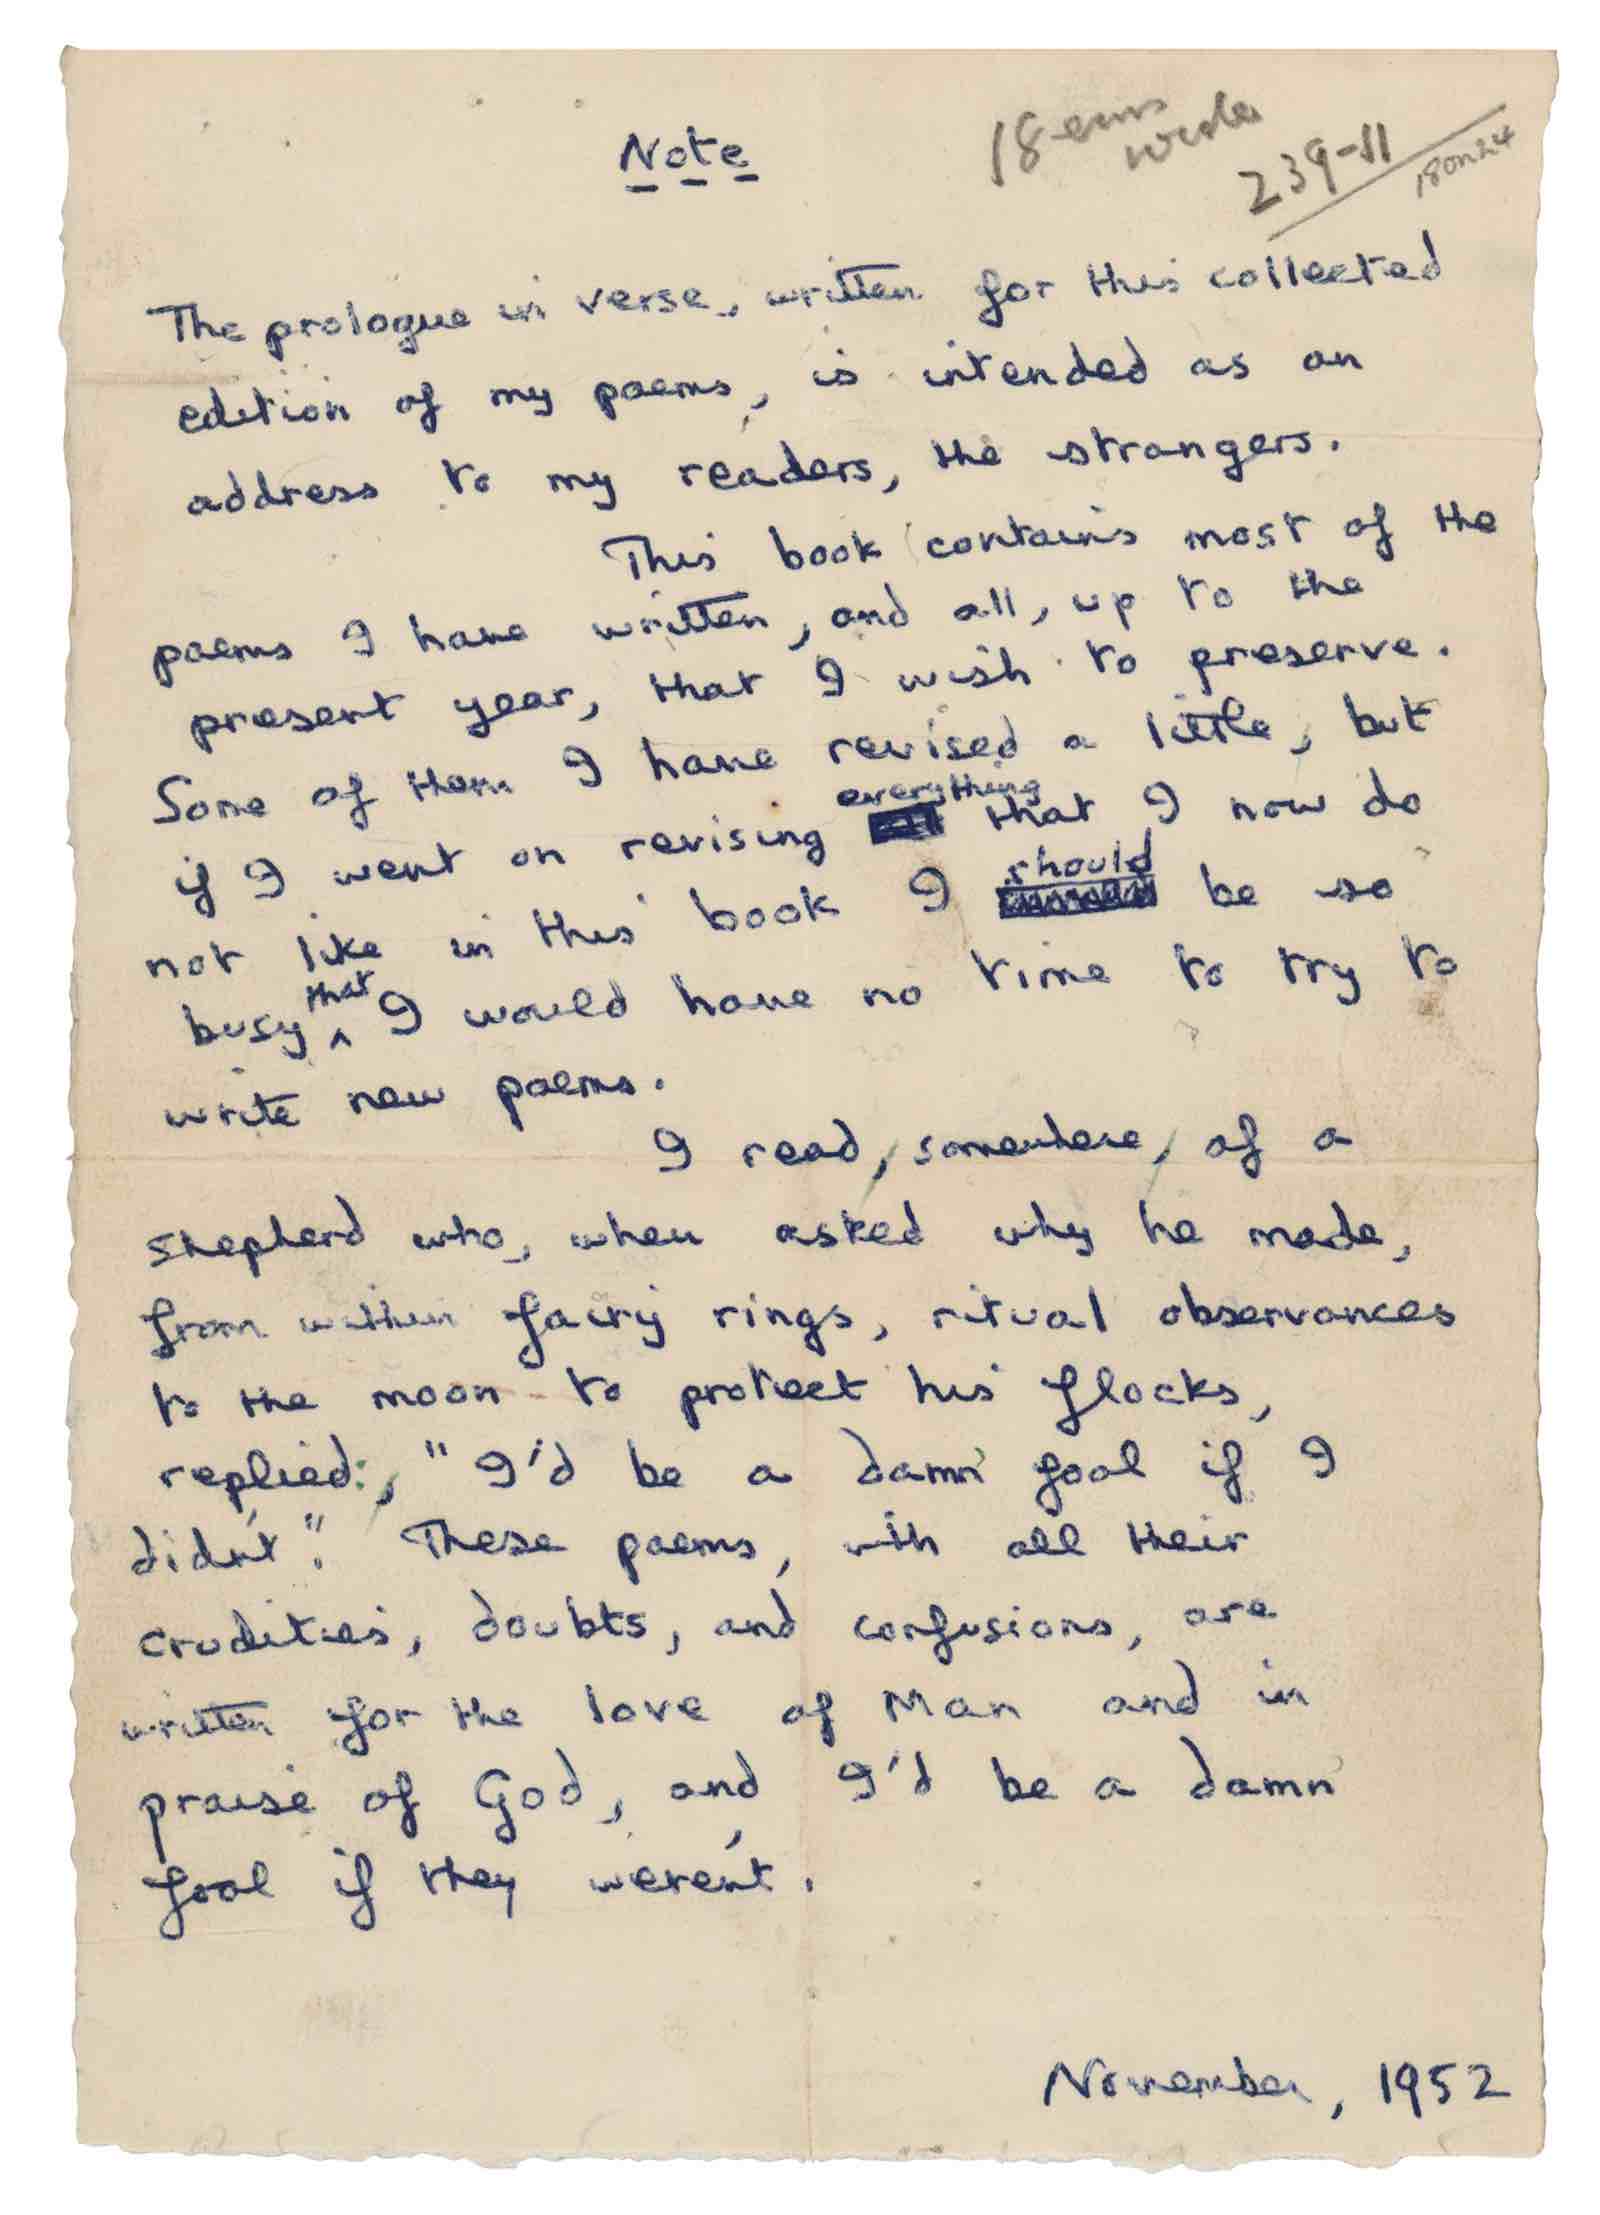 Note
18 ems
wide
239-11
18 on 24
The prologue in verse, written for this collected
edition of my poems, is intended as an
address to my readers, the strangers.
This book contains most of the
poems I have written, and all, up to the
present year, that I wish to preserve.
Some of them I have revised a little, but
everything
if I went on revising that I now do
should
not like in this book I be so
that
busy ^ I would have no time to try to
write new poems.
I read, somewhere, of a
shepherd who, when asked why he made,
from within fairy rings, ritual observances
to the moon to protect his flocks,
replied:, "I'd be a damn' fool if I
didn't". These poems, with all their
crudities, doubts, and confusions, are
written for the love of Man and in
praise of God, and I'd be a damn'
fool if they weren't.
November, 1952